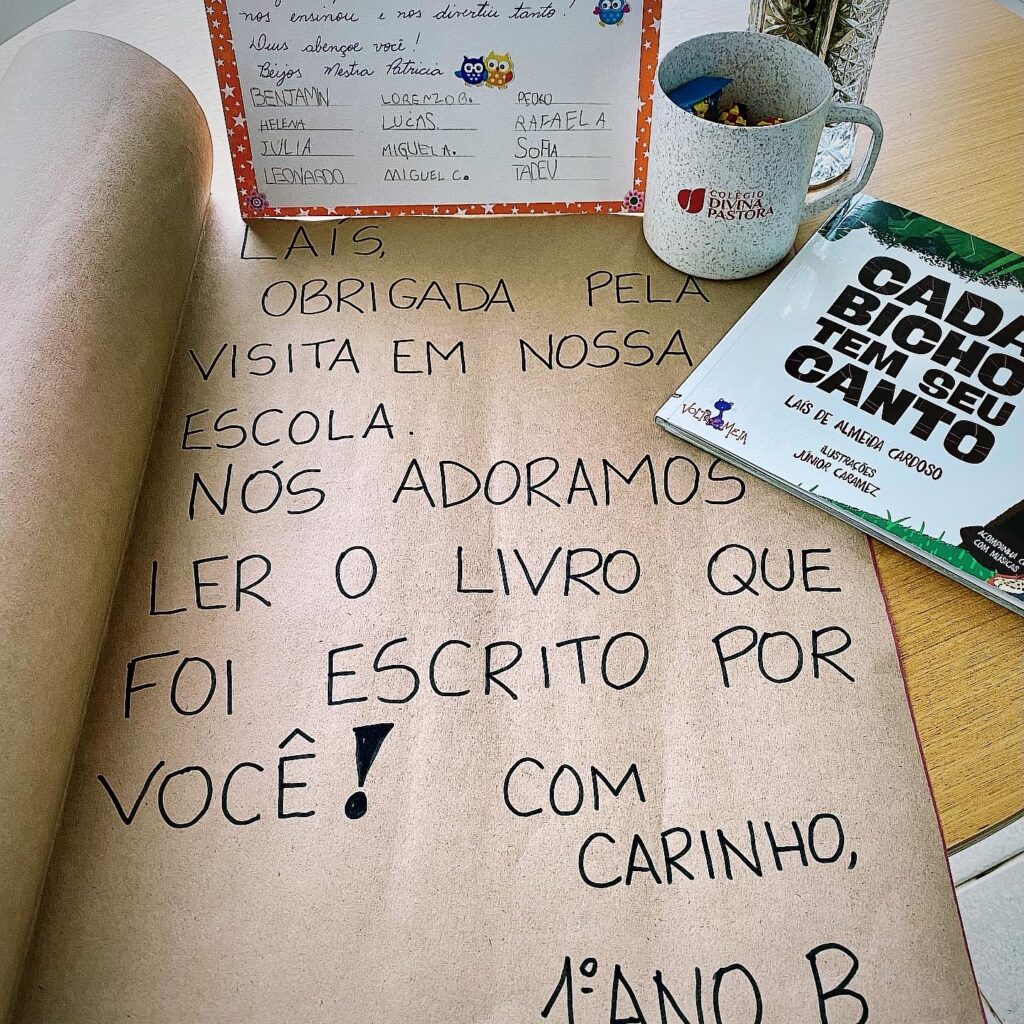 nos ensinou e nos divertiu tanto!
Deus abençoe você!
Beijos Mestra Patricia
BENJAMIN LORENZO B. PEDRO
HELENA LUCAS RAFAELA
JULIA MIGUEL A. SOFIA
LEONARDO MIGUEL C. TADEU
COLÉGIO
DIVINA
PASTORA
CADA
BICHO
TEM SEU
CANTO
LAÍS DE ALMEIDA CARDOSO
ILUSTRAÇÕES
JÚNIOR CARAMEZ
VOLTA E MEIA
ACOMPANHA
COM MÚSICAS
LAÍS,
OBRIGADA PELA
VISITA EM NOSSA
ESCOLA.
NÓS ADORAMOS
LER O LIVRO QUE
FOI ESCRITO POR
VOCÊ!
COM
CARINHO,
1º ANO B